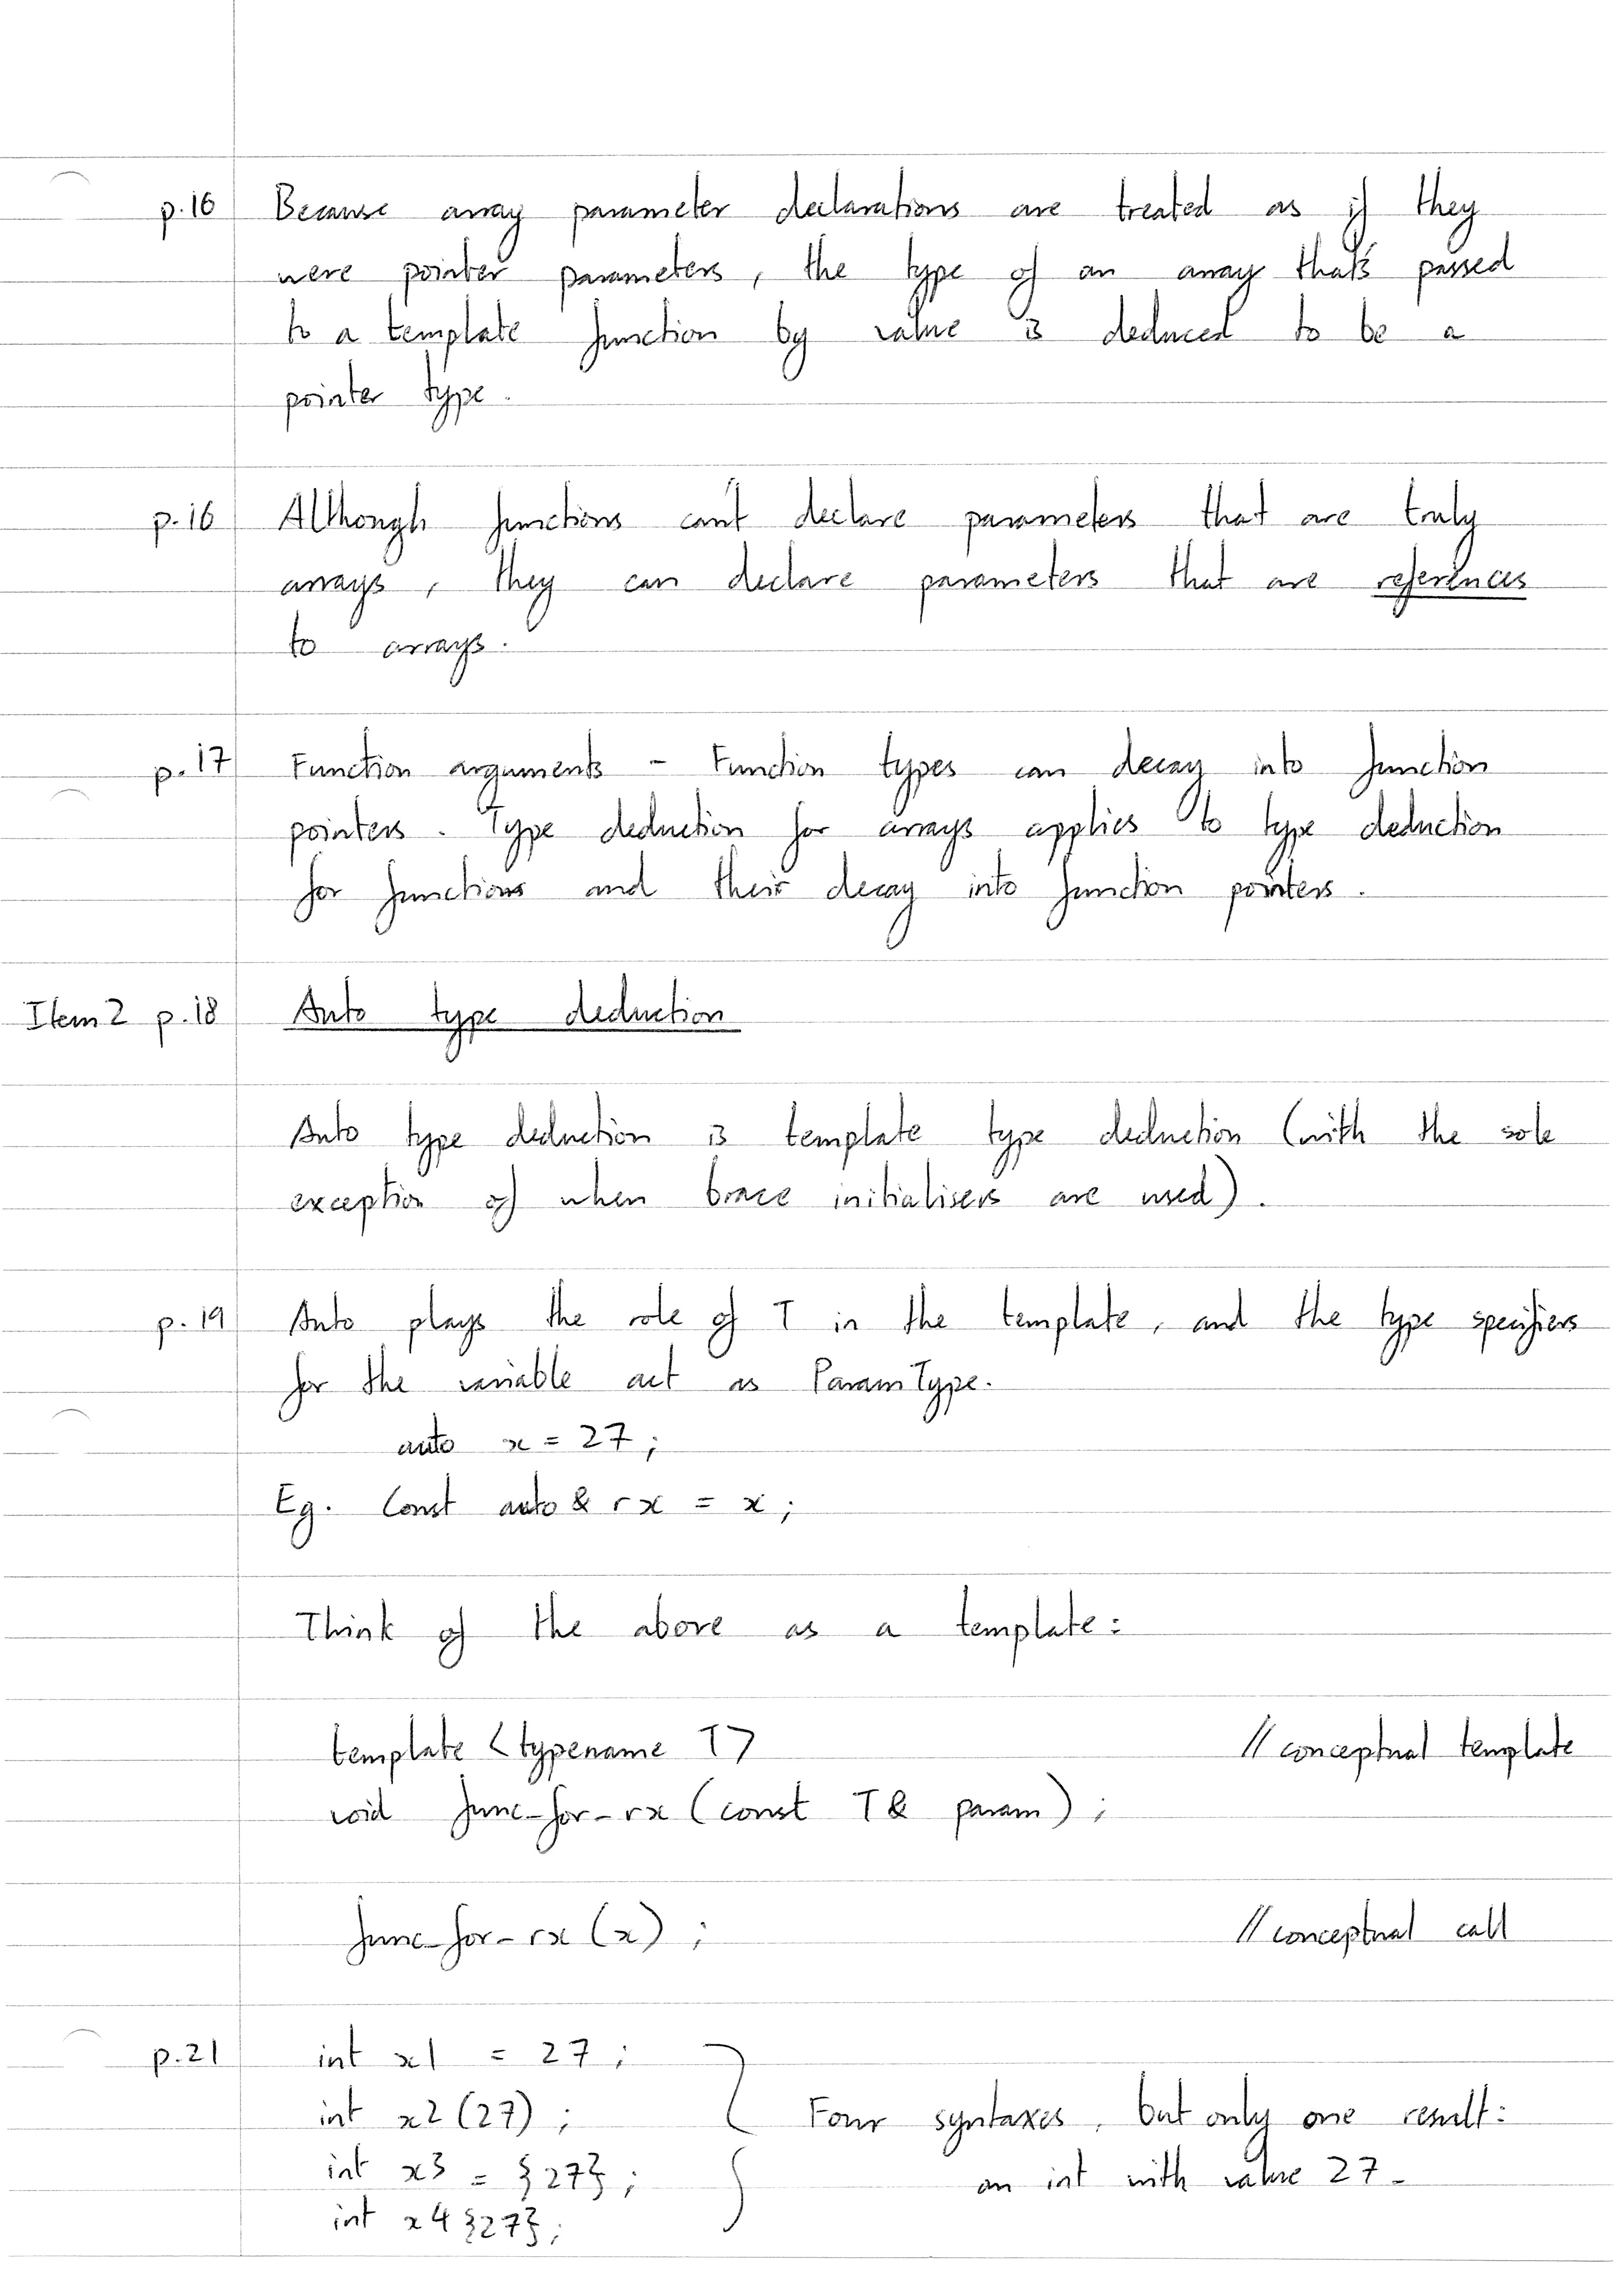 p.16 Because array parameter declarations are treated as if they
were pointer parameters, the type of an array that's passed
to a template function by value is deduced to be a
pointer type.
p.16 Although functions can't declare parameters that are truly
arrays, they can declare parameters that are references
to arrays.
p.17 Function arguments - Function types can decay into function
pointers. Type deduction for arrays applies to type deduction
for functions and their decay into function pointers.
Item 2 p.18 Auto type deduction
Auto type deduction is template type deduction (with the sole
exception of when brace initialisers are used).
p.19 Auto plays the role of T in the template, and the type specifiers
for the variable act as ParamType.
auto x = 27;
Eg. Const auto & rx = x;
Think of the above as a template:
template <typename T> //conceptual template
void func_for_rx (const T& param);
func_for_rx (x); //conceptual call
p.21 int x1 = 27;
int x2 (27); Four syntaxes, but only one result:
int x3 = {27}; an int with value 27.
int x4 {27};